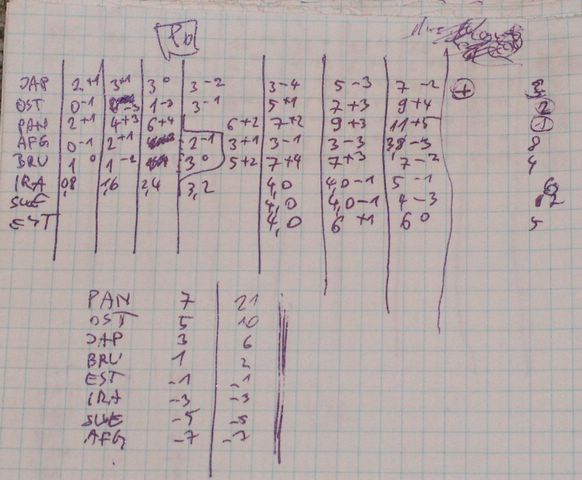 Pb
JAP 2+1 3+1 3 0 3-2 3-4 5-3 7-2 +
OST 0-1 -3 1-3 3-1 5+1 7+3 9+4 2
PAN 2+1 4+3 6+4 6+2 7+2 9+3 11+5 1
AFG 0-1 2+1 2-1 3+1 3-1 3-3 3,8-3 8
BRU 1 0 1-2 3 0 5+2 7+4 7+3 7-2 4
IRA 0,8 1,6 2,4 3,2 4,0 4,0-1 5-1
SWE 4,0 4,0-1 4-3
EST 4,0 6+1 6 0 5
PAN 7 21
OST 5 10
JAP 3 6
BRU 1 2
EST -1 -1
IRA -3 -3
SWE -5 -5
AFG -7 -7